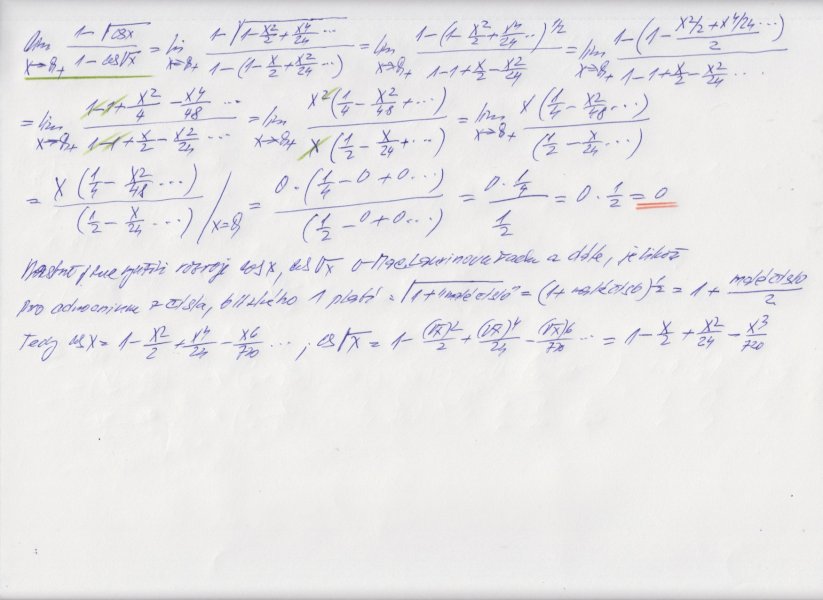 lim x→0+ (1-√cosx)/(1-cos√x) = lim x→0+ (1-√(1-x²/2+x⁴/24...))/(1-(1-x/2+x²/24...)) = lim x→0+ (1-(1-x²/2+x⁴/24...)^1/2)/(1-1+x/2-x²/24) = lim x→0+ (1-(1-(x²/2+x⁴/24...)/2))/(1-1+x/2-x²/24...)
= lim x→0+ (1-1+x²/4-x⁴/48...)/(1-1+x/2-x²/24...) = lim x→0+ x²(1/4-x²/48+...)/x(1/2-x/24+...) = lim x→0+ x(1/4-x²/48...)/(1/2-x/24...)
= x(1/4-x²/48...)/(1/2-x/24...) /x=0 = 0·(1/4-0+0...)/(1/2-0+0...) = 0·1/4 / 1/2 = 0·1/2 = 0
rozvoje cosx, cos√x v Maclaurinovu řadu a dále, jelikož
pro odmocninu z čísla, blízkého 1 platí = √1+"malé číslo" = (1+malé číslo)^1/2 = 1+ malé číslo/2
Tedy cosx = 1-x²/2+x⁴/24-x⁶/720..., cos√x = 1-(√x)²/2+(√x)⁴/24-(√x)⁶/720... = 1-x/2+x²/24-x³/720